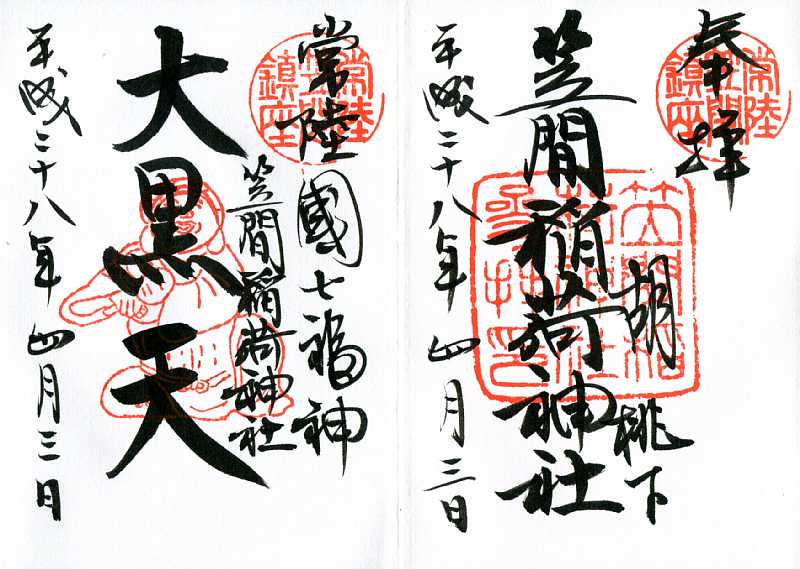 奉拝
常陸
笠間
鎮座
胡桃下
笠間稲荷神社
平成二十八年四月三日
常陸國七福神
常陸
笠間
鎮座
笠間稲荷神社
大黒天
平成二十八年四月三日